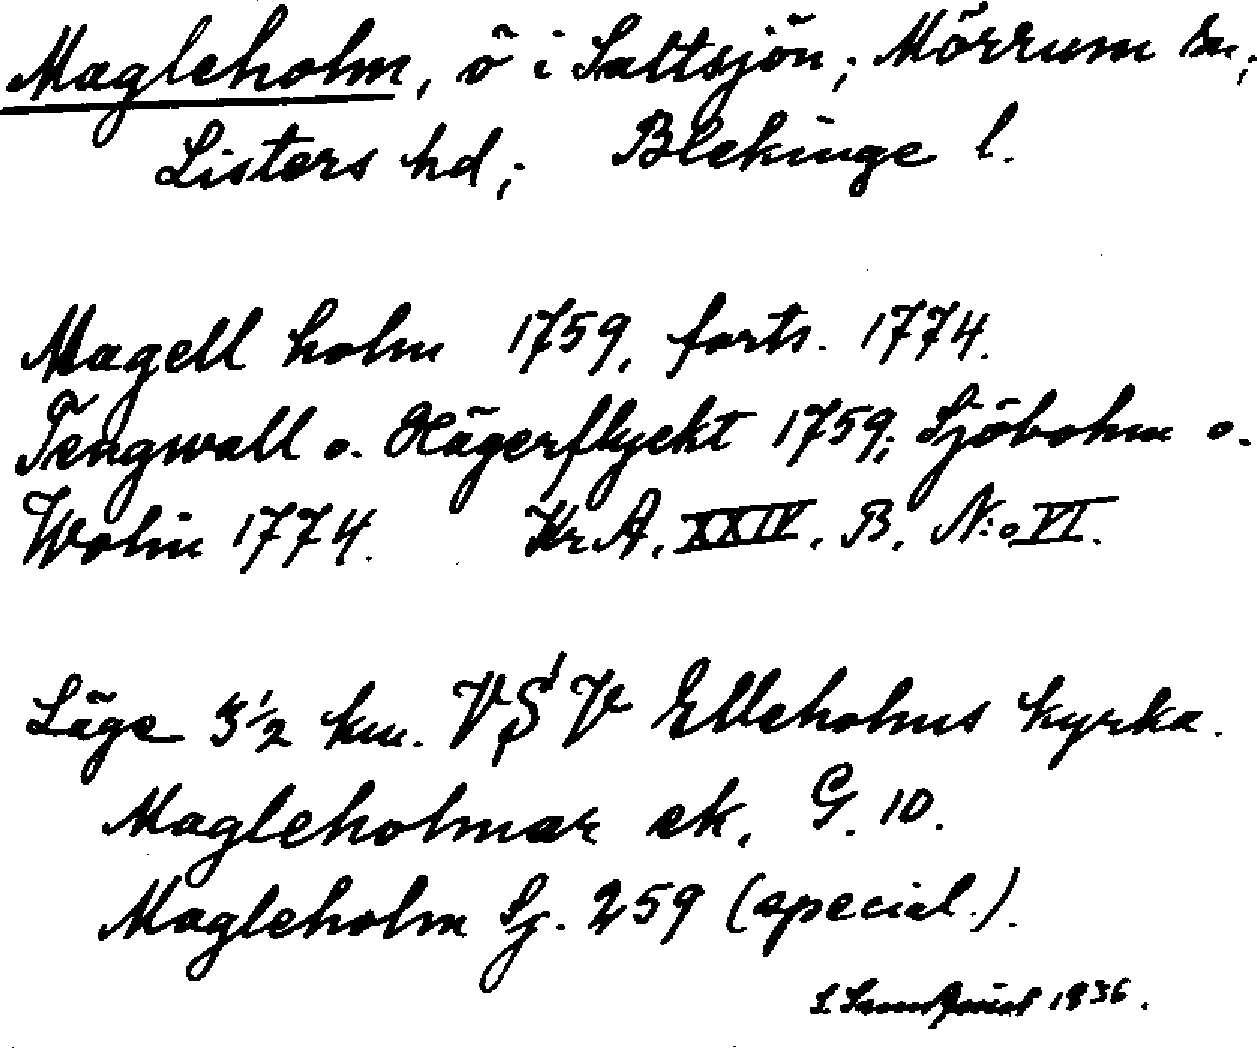 Magleholm, ö i Saltsjön; Mörrum sn;
Listers hd; Blekinge l.
Magell holm 1759, forts. 1774.
Tengwall o. Hägerflyckt 1759; Sjöbohm o.
Wohin 1774. Kr. A. XXIV. B. N:o VI.
Läge 3½ km. V S V Elleholms kyrka.
Magleholmar ek. G. 10.
Magleholm Sj. 259 (special.).
1936.